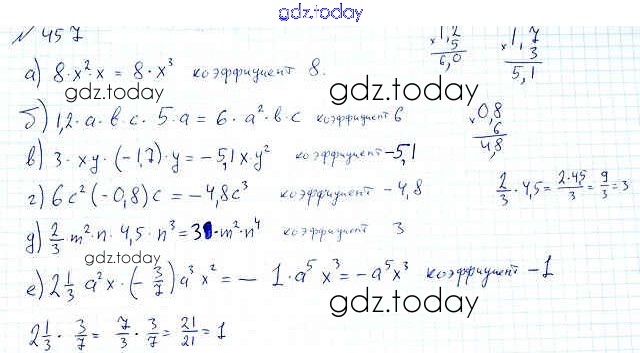 gdz.today
№ 457
а) 8·x²·x = 8·x³ коэффициент 8.
× 1,2
5
6,0
× 1,7
3
5,1
gdz.today
gdz.today
б) 1,2·a·b·c·5·a = 6·a²·b·c коэффициент 6
× 0,8
6
4,8
в) 3·xy·(-1,7)·y = -5,1x·y² коэффициент -5,1
г) 6c²(-0,8)c = -4,8c³ коэффициент -4,8
2/3 · 4,5 = 2·4,5/3 = 9/3 = 3
д) 2/3·m²·n·4,5·n³ = 3·m²·n⁴ коэффициент 3
gdz.today
gdz.today
е) 2 1/3 a²x·(-3/7)a³x² = -1·a⁵x³ = -a⁵x³ коэффициент -1
gdz.today
2 1/3 · 3/7 = 7/3 · 3/7 = 21/21 = 1